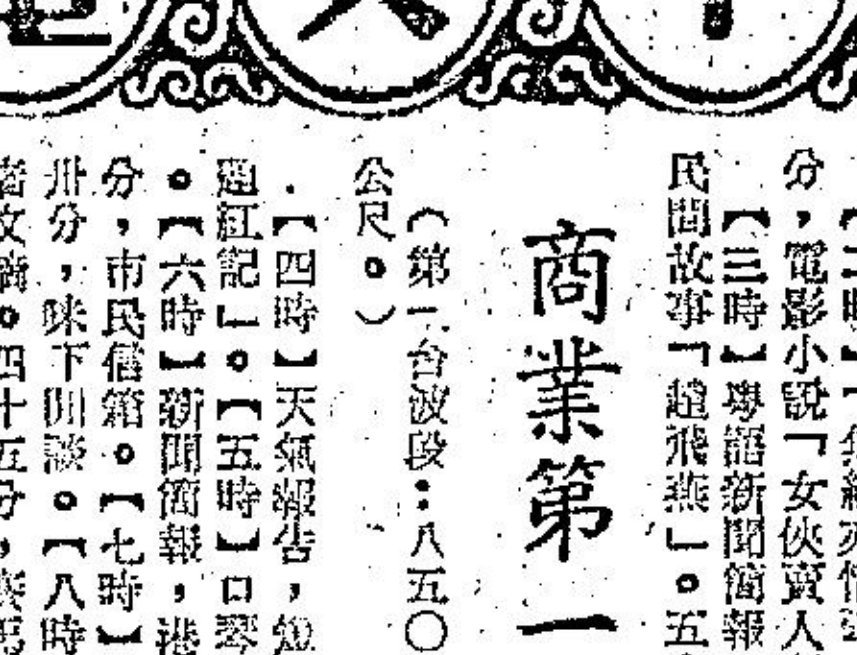 分，電影小說「女俠賣人
【三時】粵語新聞簡報
民間故事「趙飛燕」。五
商業第一
（第一台波段：八五〇
公尺。）
【四時】天氣報告，
紅記」。【五時】口琴
。【六時】新聞簡報，港
分，市民信箱。【七時】
卅分，咪下閒談。【八時
四十五分，